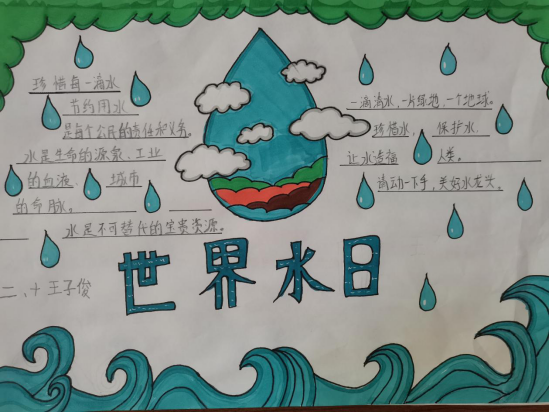 珍惜每一滴水
节约用水
是每个公民的责任和义务。
水是生命的源泉、工业
的血液、城市
的命脉。
水是不可替代的宝贵资源。
一滴清水,一片绿地,一个地球。
珍惜水、保护水、
让水造福人类。
请动一下手,关好水龙头。
世界水日
二、十 王子俊